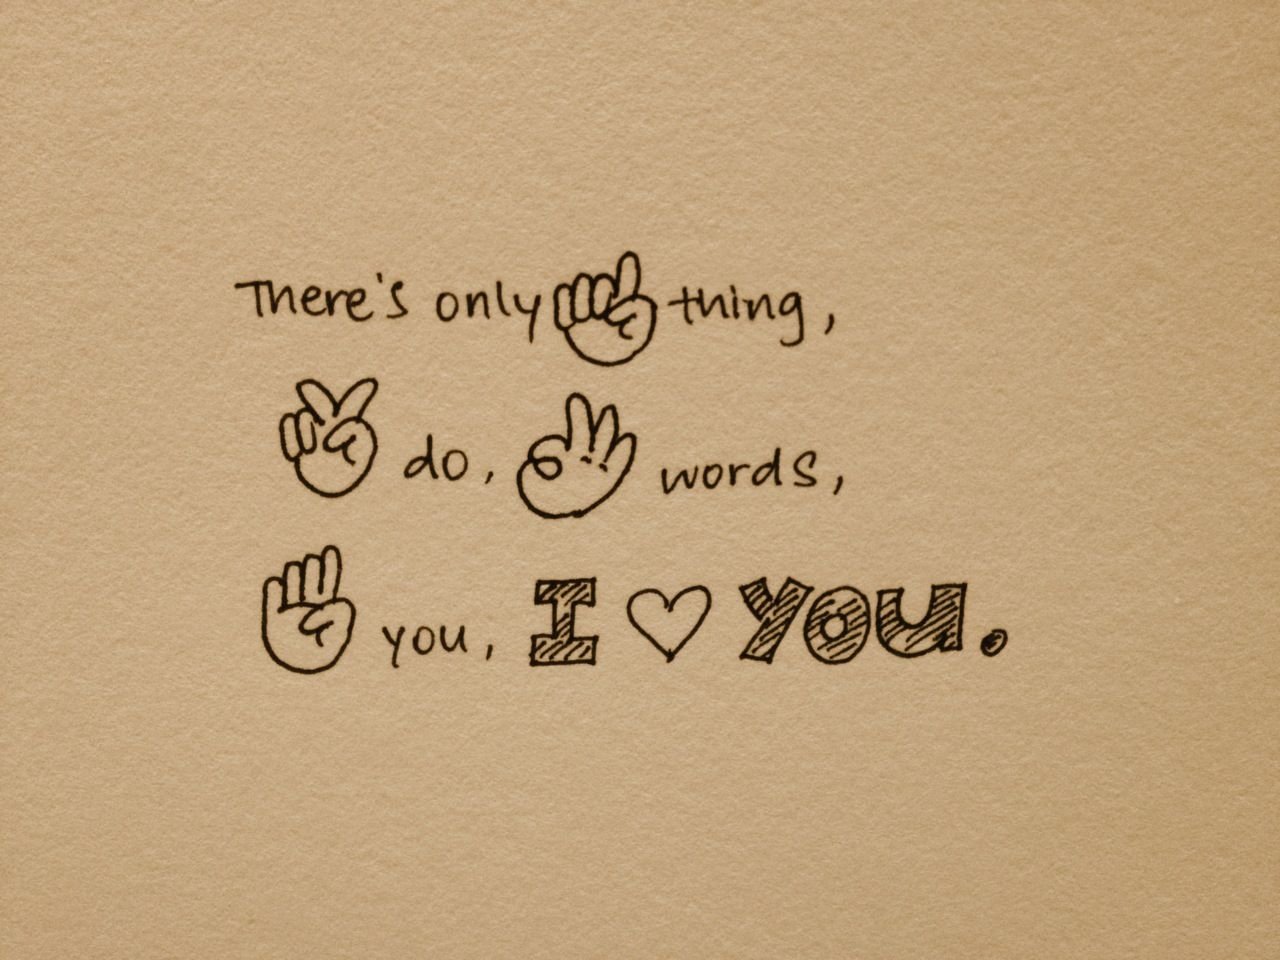 There's only ☝ thing,
✌ do, 👌 words,
🖖 you, I ♡ YOU.